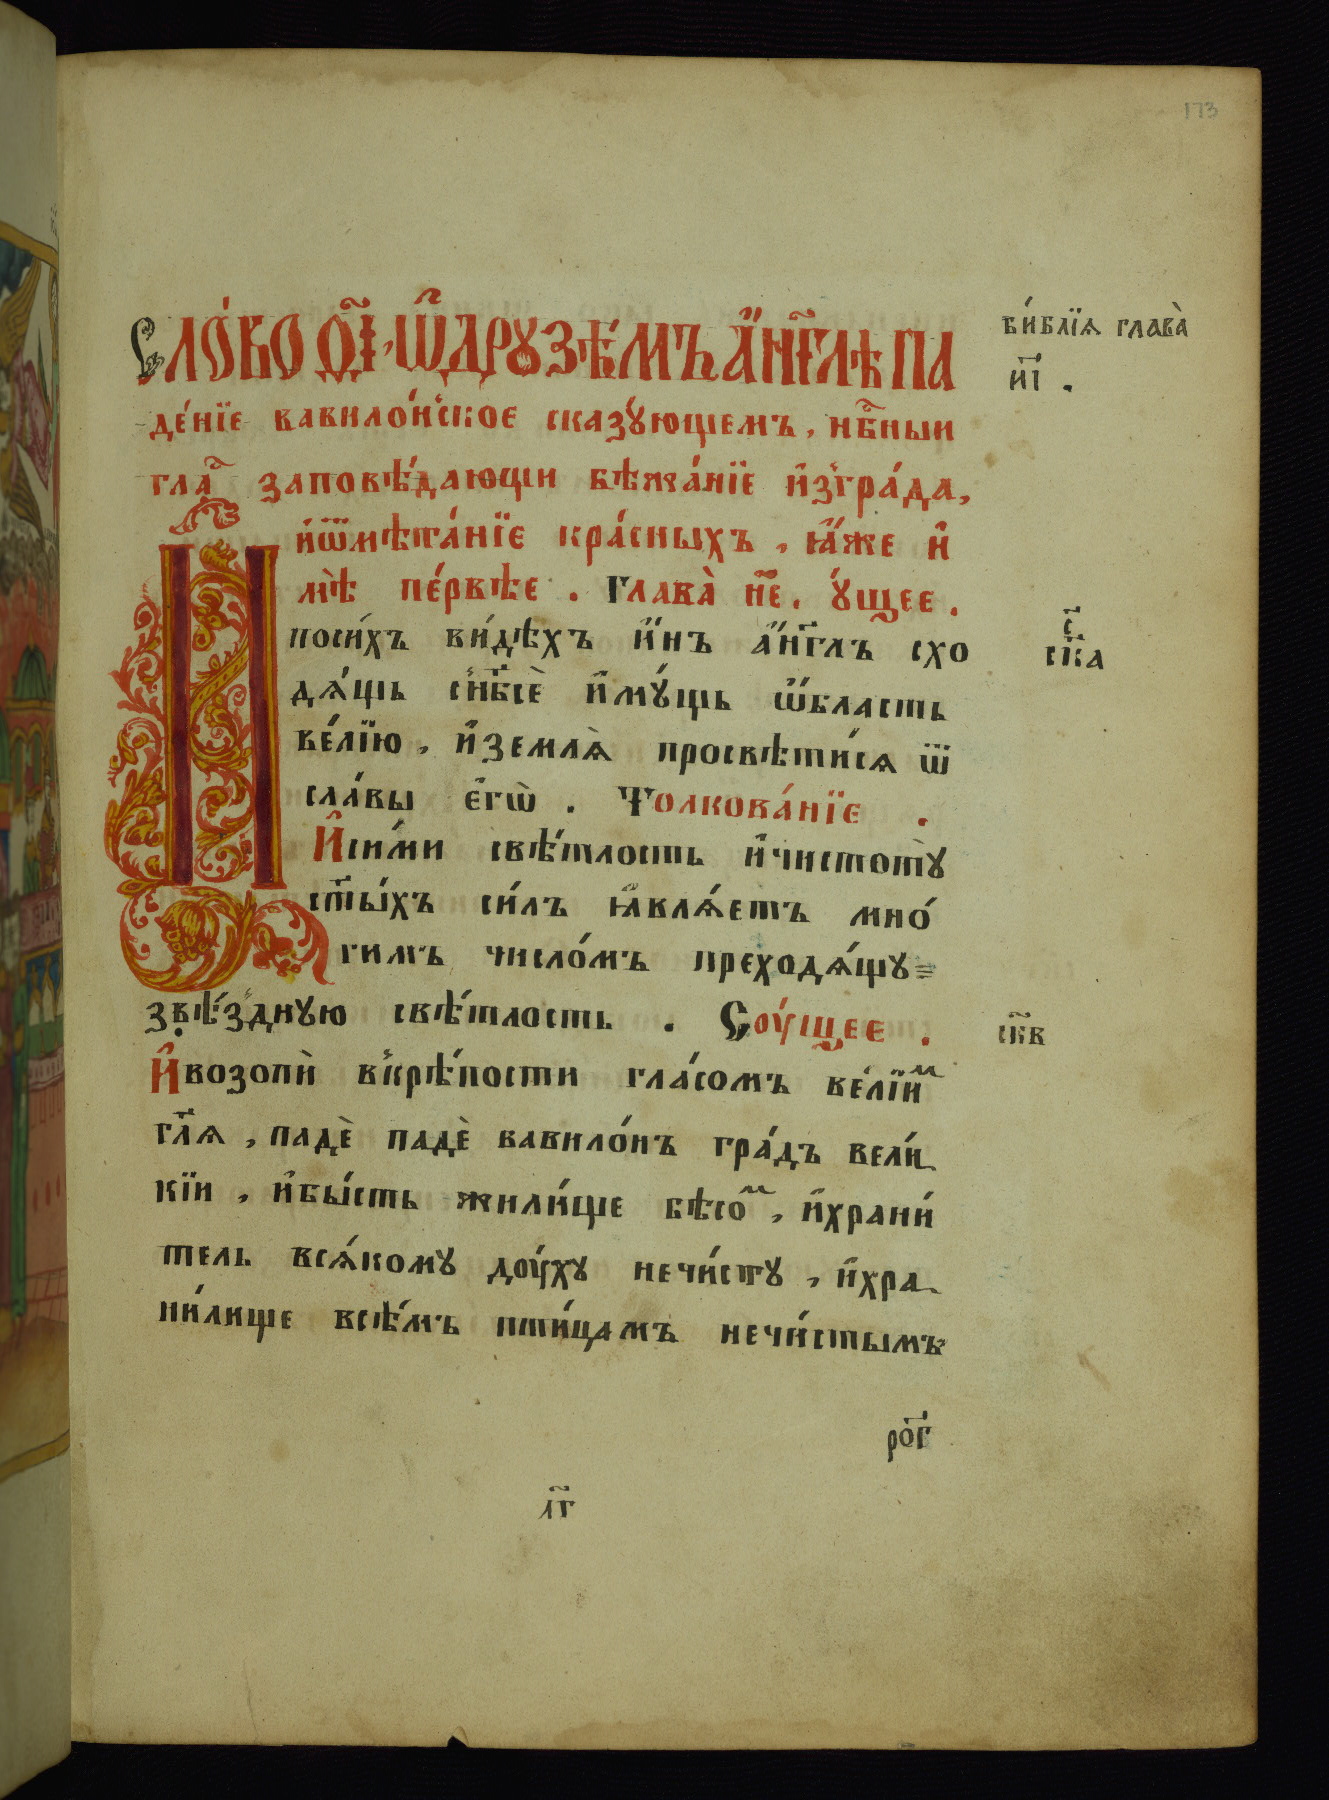 173
Сло́во ѻ҃і, ѿдрꙋзѣ́мъ а҆́нг҃лѣ па
де́нїе вавило́нское сказꙋ́ющемъ, нб҃ныи
гла҃ заповѣ́дающи бѣжа́нїе и҆згра́да,
и҆ѿмѣта́нїе кра́сныхъ, ꙗ҆́же и҆
мѣ̀ пе́рвѣе. Глава̀ н҃е. ꙋ́щее.
Поси́хъ ви́дѣхъ и҆́нъ а҆́нг҃лъ схо
дѧ́щь сн҃бсѐ и҆мꙋ́щь ѡ҆́бласть
ве́лїю, и҆землѧ̀ просвѣти́сѧ ѿ
сла́вы є҆гѡ̀. Толкова́нїе.
И҆си́ми свѣ́тлость и҆чистотꙋ̀
ст҃ы́хъ си́лъ ꙗ҆влѧ́етъ мно́
гимъ число́мъ преходѧ́щꙋ
звѣ́зднꙋю свѣ́тлость. Соу́щее.
И҆возопѝ вкрѣ́пости гла́сомъ ве́лїиⷨ
гл҃ѧ, падѐ падѐ вавило́нъ гра́дъ вели́
кїи, и҆бы́сть жили́ще бѣсоⷨ, и҆храни́
тель всѧ́комꙋ доу́хꙋ нечи́стꙋ, и҆хра
ни́лище всѣ́мъ пти́цамъ нечи́стымъ
би́блїѧ глава̀
и҃і.
с҃
ск҃а
ск҃в
ро҃г
л҃г